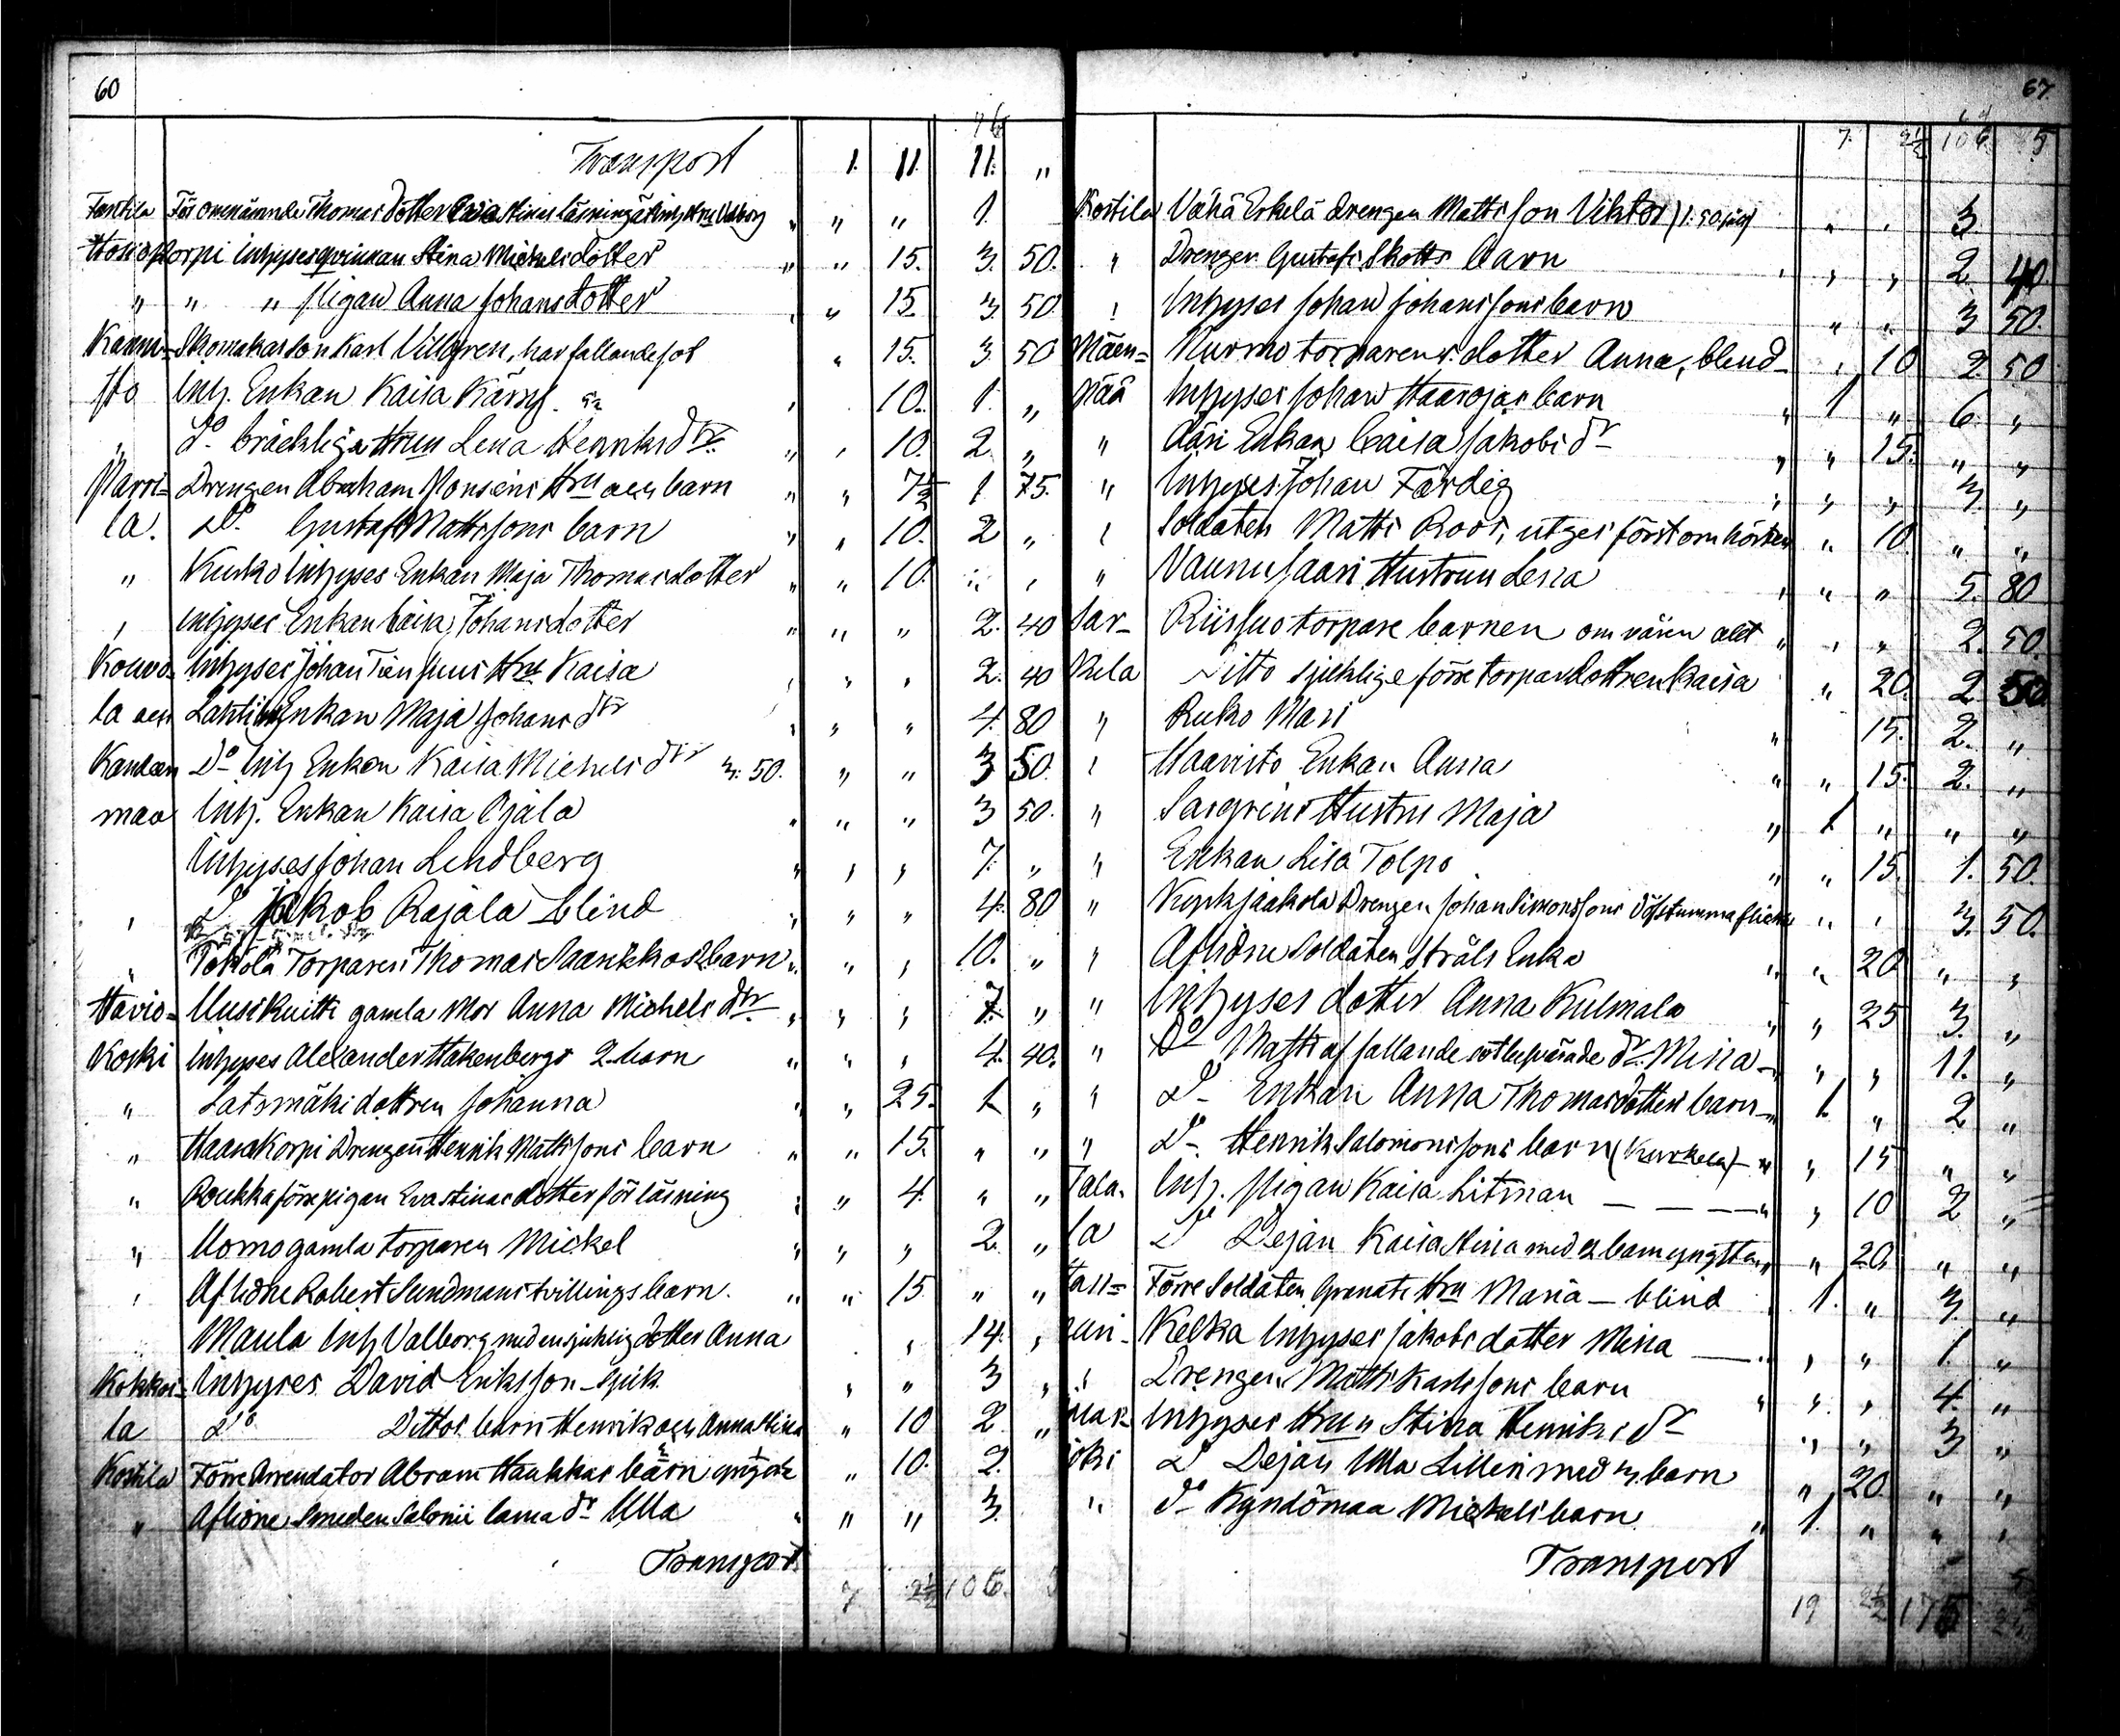 60
Transport 1. 11. 11. "
Hosio Korpi Inhyses qvinnan Stina Michelsdotter " " 15. 3. 50.
" " " Pigan Anna Johansdotter " 15. 3 50
Kanni- Skomakarson Karl Villgren, har fallandesot " 15. 3. 50
sto Inh. Enkan Kaisa Kärpf. 10. 1. "
" Do bräckliga Hrun Lena Henriksdtr " , 10. 2. "
Parri- Drengen Abraham Ponseni Hru och barn " " 7½ 1 75.
la. Do Gustaf Mattssons barn " " 10. 2 "
" Kurko Inhyses Enkan Maja Thomasdotter " " 10. " "
" Inhyses Enkan Caisa Johansdotter " " " 2. 40
Kouvo- Inhyses Johan Tiensuus Hru Kaisa " " 2. 40
la och Lahti Inh Enkan Maja Johansdtr " " " 4. 80
Kandan Do Inh Enkan Kaisa Michelsdtr 3: 50. " " 3 50.
maa Inh. Enkan Kaisa Ojala " " " 3 50.
Inhyses Johan Lindberg " " " 7. "
" Do Jakob Rajala blind " " " 4. 80
" Torparen Thomas Saarikkos 2 barn " " " 10. "
Havio- Uusikuitti gamla Mor Anna Michelsdtr " " " 7. "
Koski Inhyses Alexander Hakenbergs 2 barn " " " 4. 40.
" Latsmäki dottren Johanna " " 25. 1 "
" Haarakorpi Drengen Henrik Mattssons barn " " 15. " "
" Roukka förre pigan Eva Stinas dotter för läsning " " 4. " "
" Uomo gamla torparen Mickel " " " 2. "
" Aflidne Robert Sundmans tvillingsbarn. " " 15 " "
Maula Inh Valborg med en sjuklig dotter Anna , 14. ,
Kokkoi- Inhyses David Eriksson - sjuk " " 3 "
la Do Dittos barn Henrik och Anna Stina " 10 2 "
Kostila Förre Arrendator Abram Haukkas barn " 10. 2.
" Aflidne Smeden Salonii lama dr Ulla " " " 3.
Transport
7 2½ 106. 5
67.
7. 2½ 106. 5
Kostila Vähä Eskelä drengen Mattsson Viktor " " 3.
" Drengen Gustafs Skotts barn " " " 2 40.
" Inhyses Johan Johanssons barn " " 3 50.
Mäen- Nurmo torparens dotter Anna, blind - " 10 2. 50
pää Inhyses Johan Haarojas barn " 1 " 6. "
" Ääri Enkan Caisa Jakobsdr " " 15. " "
" Inhyses Johan Färdig " " " 3. "
" Soldaten Matts Roos, utges först om hösten " 10. " "
" Vaunusaari Hustrun Lena " " " 5. 80
Sar- Riissuo torpare barnen om våren allt " " " 2. 50.
kela Ditto sjuklige förre torpardottren Kaisa " 20. 2 50
" Ruko Mari " 15. 2. "
" Haavisto Enkan Anna " " 15. 2. "
" Sasgrens Hustru Maja " 1 " " "
" Enkan Lisa Tolpo " " 15. 1. 50.
" Drengen Johan Simonssons döfstumma flicka " " 3. 50.
" Aflidne Soldaten Stråls Enka " " 20 " "
" Inhyses dotter Anna Kulmala " " 25 3. "
" Do Matts af fallande sot besvärade dr. Mina - " " 11. "
" Do Enkan Anna Thomasdotters barn - 1. " 2 "
" Do Henrik Salomonssons barn (Kurkela) - " " 15 " "
Tala- Inh. Pigan Kaisa Litman — — — " " 10 2 "
la Do Dejan Kaisa Stina med 2 barn " 20. " "
Förre Soldaten Granats Hru Maria - blind 1. " 3. "
Kelka Inhyses Jakobs dotter Mina — " " " 1. "
" Drengen Matts Karlssons barn " " " 4. "
Inhyses Hrun Stina Henriksdr " " 3 "
joki Do Dejan Ulla Lillen med 3 barn " 20. " "
" do Kyndömaa Mickels barn. " 1. " " "
Transport
19 2½ 175